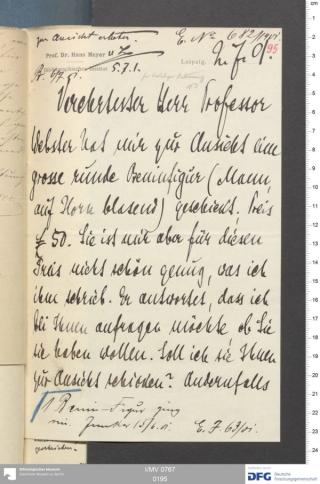 zur Ansicht erbeten.
E. No 682/1901.
Prof. Dr. Hans Meyer
Leipzig,
5.7.1.
95
Verehrtester Herr Professor
Webster hat mir zur Ansicht eine
grosse runde Beninfigur (Mann,
auf Horn blasend) geschickt. Preis
£ 50. Sie ist mir aber für diesen
Preis nicht schön genug, was ich
ihm schrieb. Er antwortet, dass ich
bei Ihnen anfragen möchte ob Sie
sie haben wollen. Soll ich sie Ihnen
zur Ansicht schicken? Andernfalls
1 Benin-Figur ging
E. J. 63/01.
I/MV 0767
0195
Ethnologisches Museum
DFG
Deutsche
Forschungsgemeinschaft